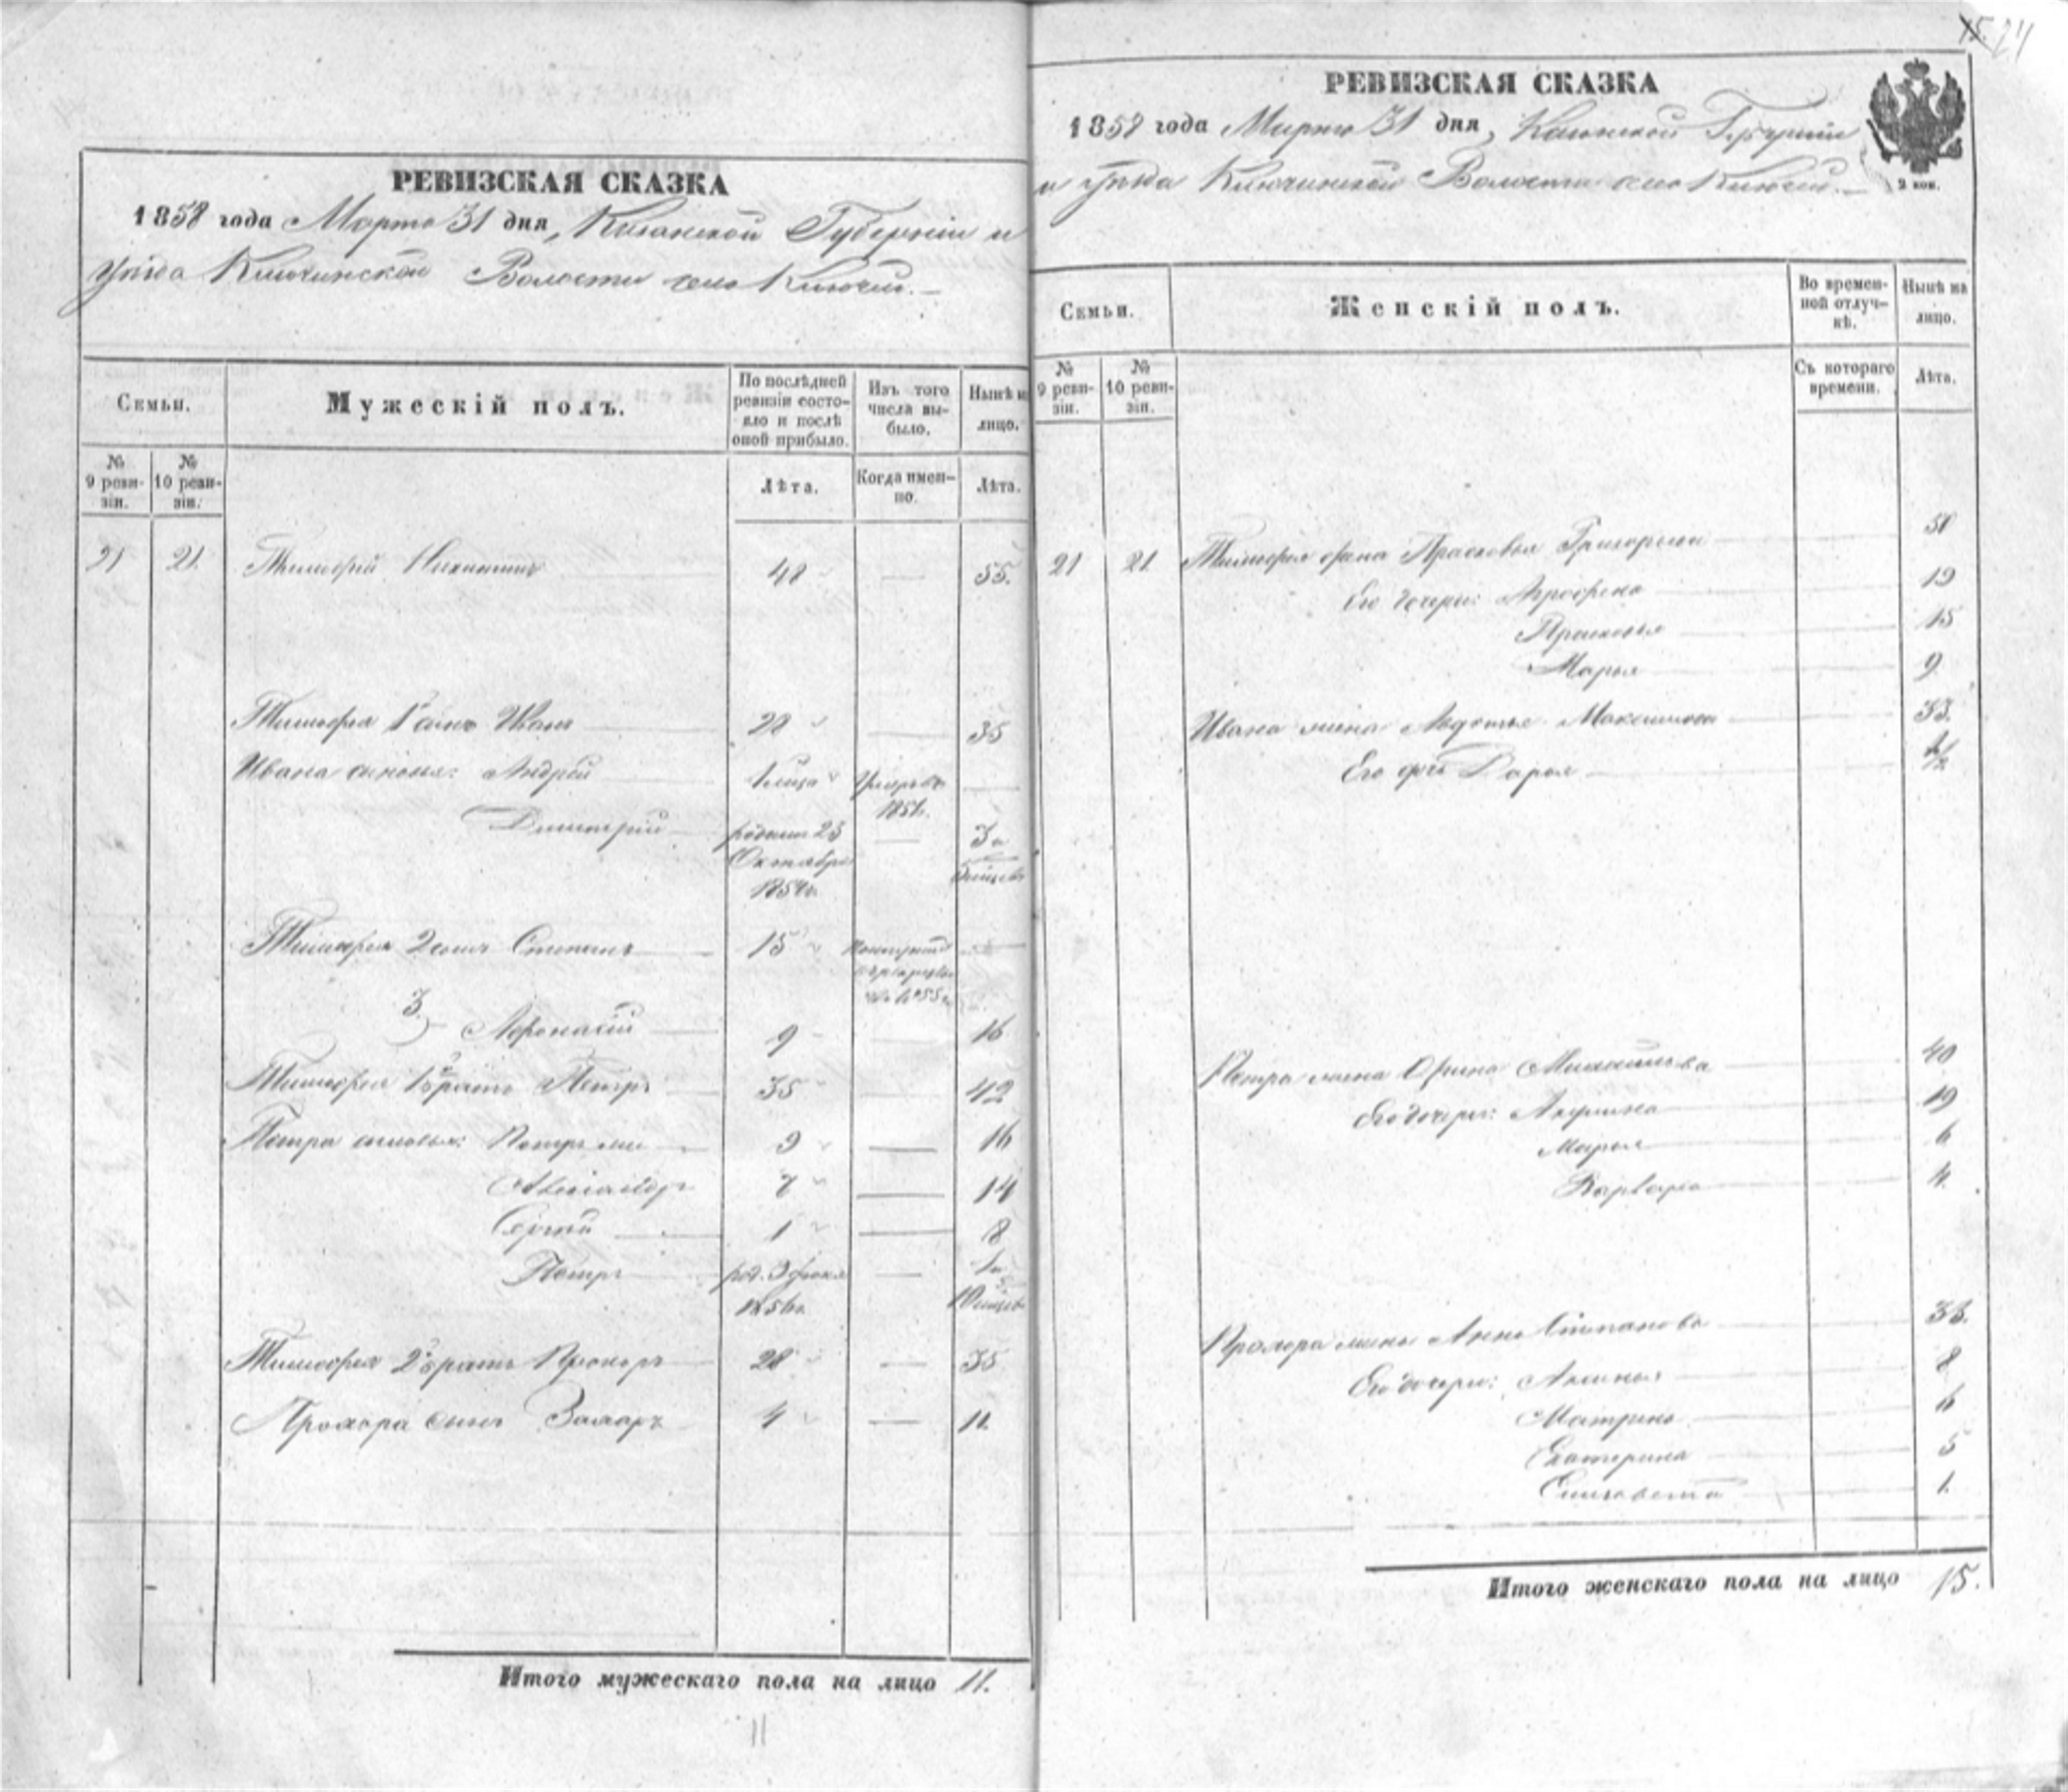 РЕВИЗСКАЯ СКАЗКА
1858 года Марта 31 дня, Казанской Губерніи и
уѣзда Ключинской Волости село Ключи.
Семьи.
Мужескій полъ.
По послѣдней ревизіи состояло и послѣ оной прибыло.
Изъ того числа выбыло.
Нынѣ на лицо.
№ 9 ревизіи.
№ 10 ревизіи.
Лѣта.
Когда именно.
Лѣта.
21 21. Тимофей Никитинъ 48 — 55.
Тимофея 1й сынъ Иванъ 28 — 35
Ивана сыновья: Андрей Умеръ въ —
185
Димитрій родился 23 — 3 и
Октября 5 мѣсяцев
1854 г.
Тимофея 2 сынъ Степанъ 15 —
1855
3) Афонасій 9 — 16
Тимофея 1й братъ Петръ 35 — 42
Петра сыновья: 9 — 16
Александръ 7 — 14
Сергѣй 1 — 8
Петръ род. — 1 и
1856 г. 10 мѣсяцев
Тимофея 2й братъ Прохоръ 28 — 35
Прохора сынъ Захаръ 4 — 11.
Итого мужескаго пола на лицо 11.
11
15. 24
РЕВИЗСКАЯ СКАЗКА
1858 года Марта 31 дня, Казанской Губерніи
и уѣзда Ключинской Волости село Ключи.
2 коп.
Семьи.
Женскій полъ.
Во временной отлучкѣ.
Нынѣ на лицо.
№ 9 ревизіи.
№ 10 ревизіи.
Съ котораго времени.
Лѣта.
21 21. Тимофея жена Прасковья Григорьева
Его дочери: Аграфена 19
Прасковья 15
Марья 9
Ивана жена Авдотья Максимова 33.
Его дочь Дарья 1/2
Петра жена Орина Михайлова 40
Его дочери: 19
Марья 6
Варвара 4.
Прохора жена Анна Степанова 33.
Его дочери: Аксинья 8
Матрена 6
Екатерина 5
Елизавета 1.
Итого женскаго пола на лицо 15.